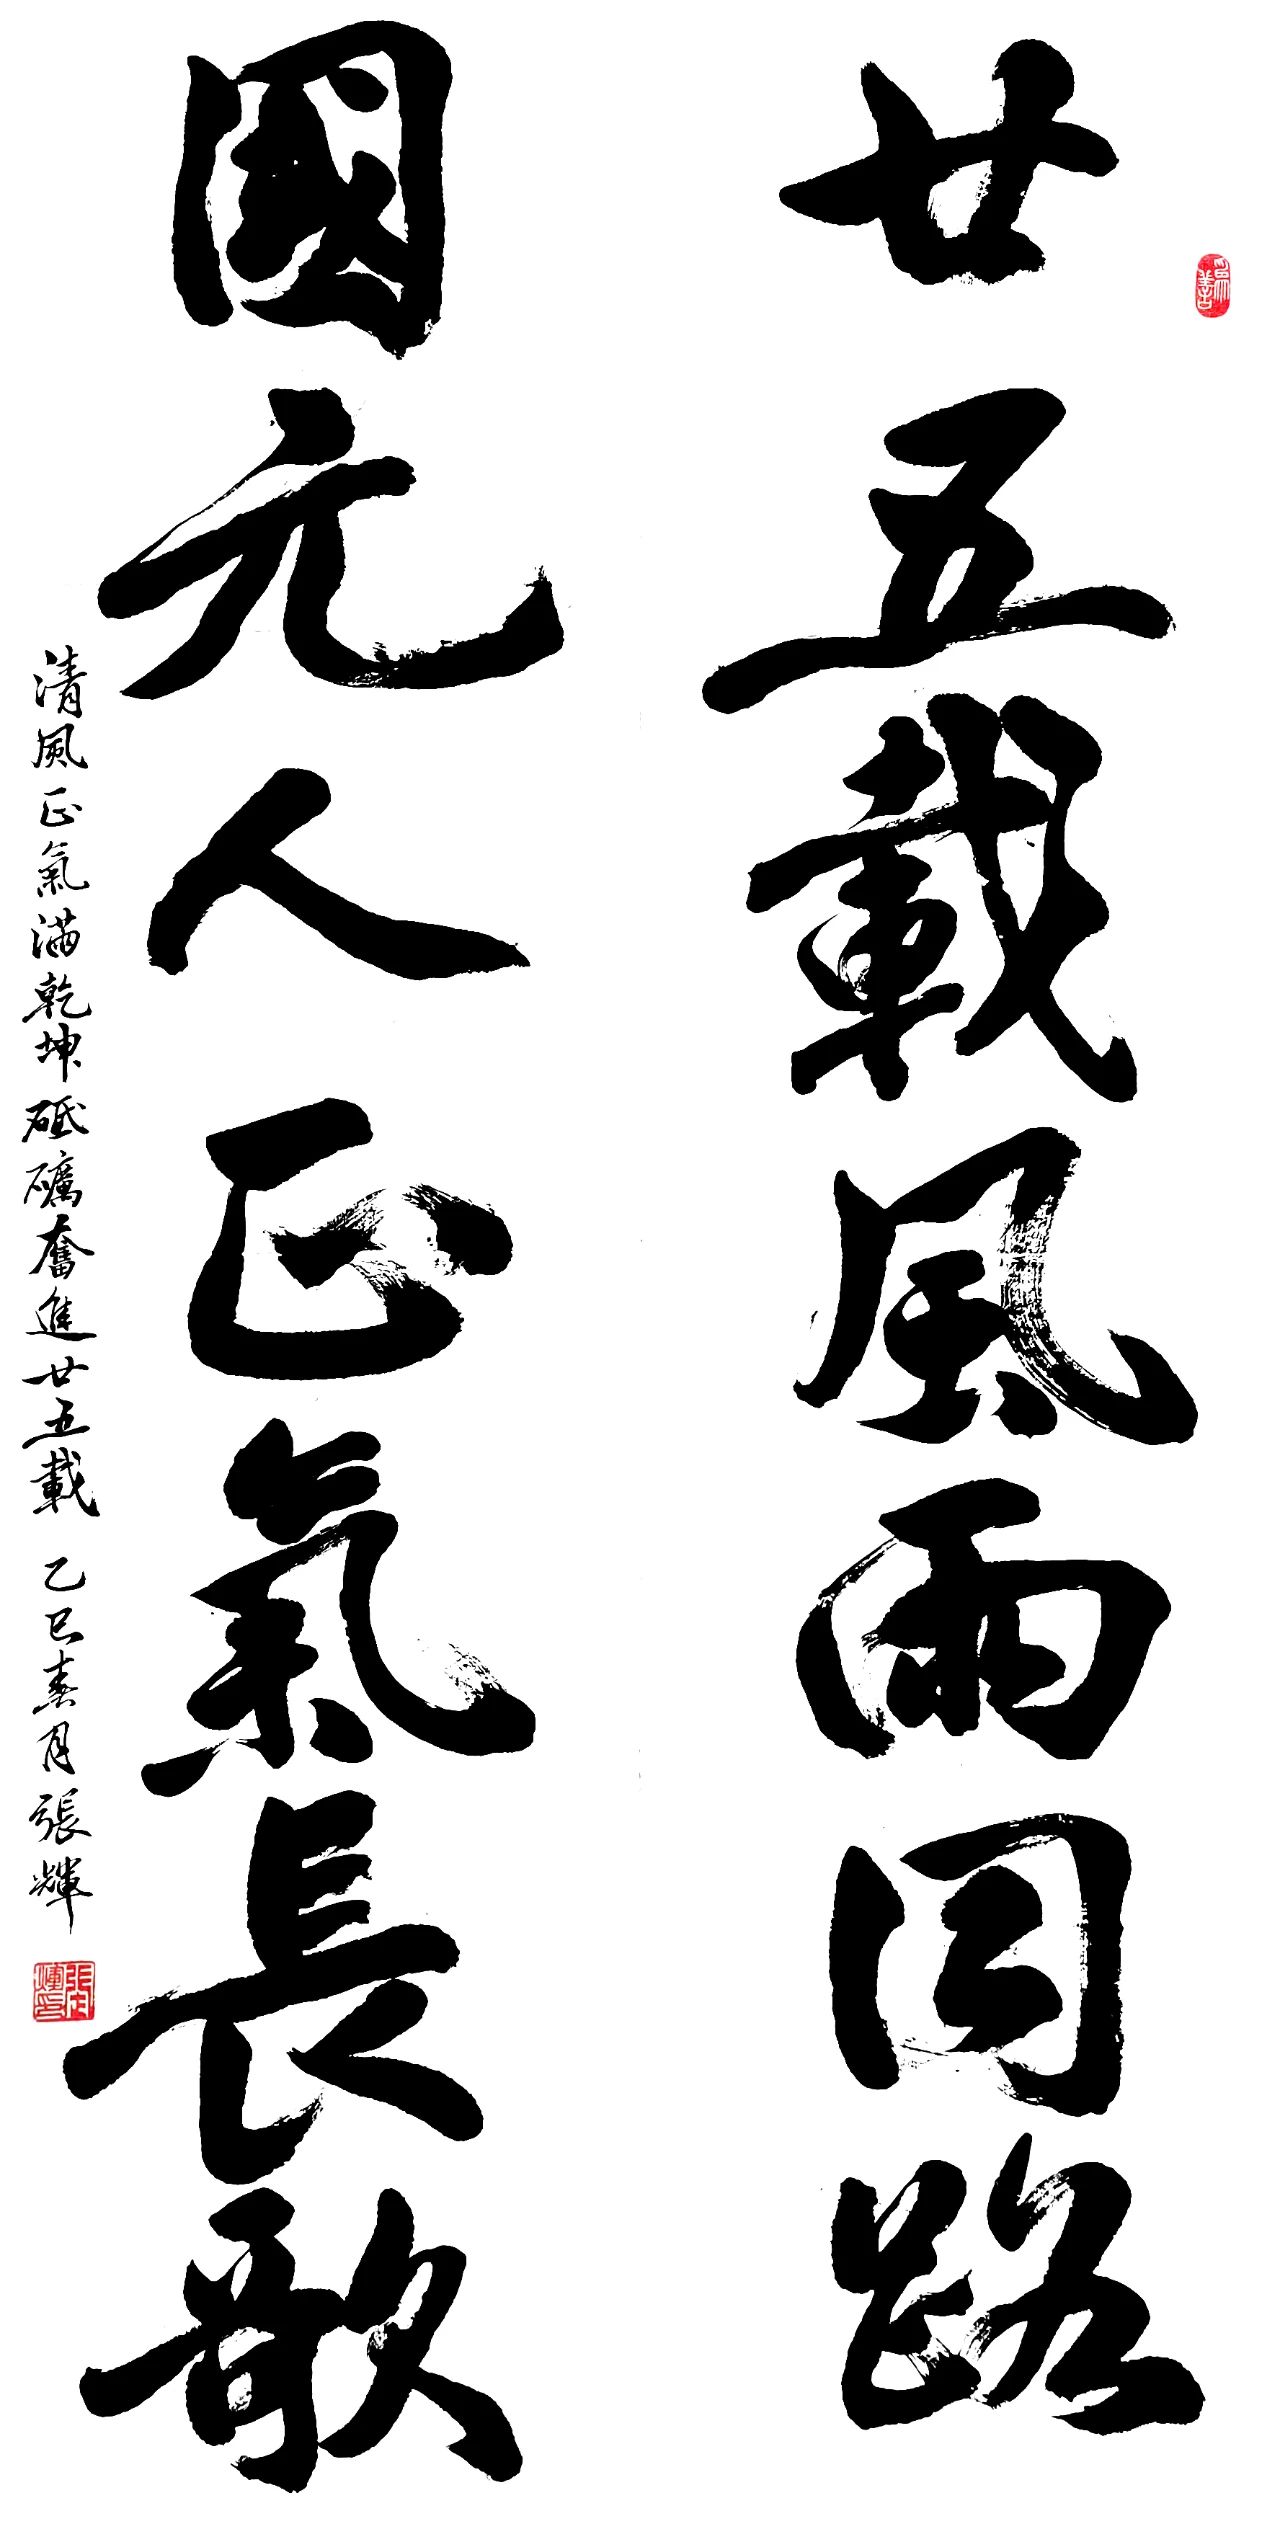 廿五載風雨同路
國元人正氣長歌
清風正氣滿乾坤砥礪奮進廿五載 乙巳春月張輝